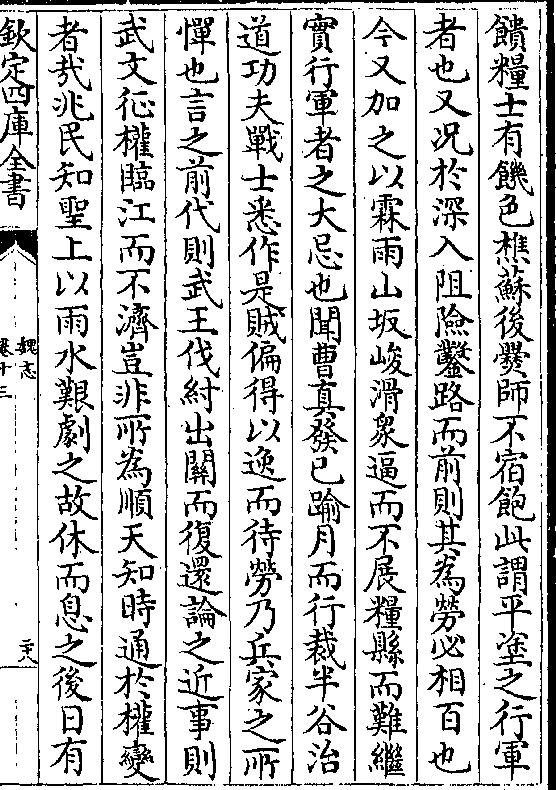 饋糧士有饑色樵蘇後爨師不宿飽此謂平塗之行軍
者也又况於深入阻險鑿路而前則其為勞必相百也
今又加之以霖雨山坂峻滑衆逼而不展糧縣而難繼
實行軍者之大忌也聞曹真發已踰月而行裁半谷治
道功夫戰士悉作是賊偏得以逸而待勞乃兵家之所
憚也言之前代則武王伐紂出關而復還論之近事則
武文征權臨江而不濟豈非所為順天知時通於權變
者哉兆民知聖上以雨水艱劇之故休而息之後日有
欽定四庫全書
魏志
卷十三
二十八